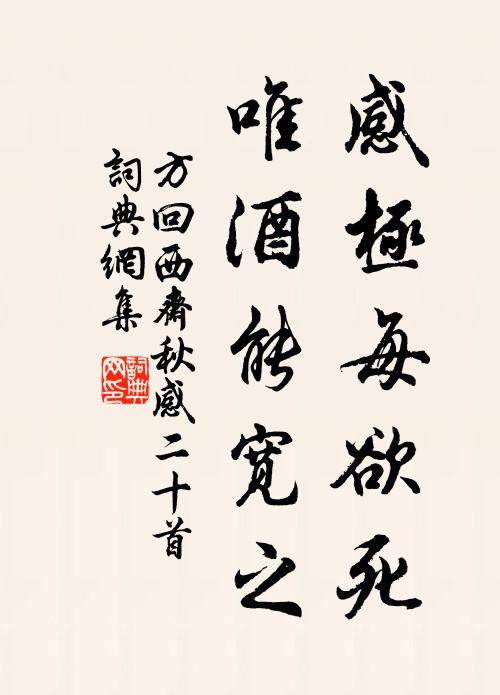 感極每欲死
唯酒能寬之
方回西齋秋感二十首
詞典網集
詞典
网印